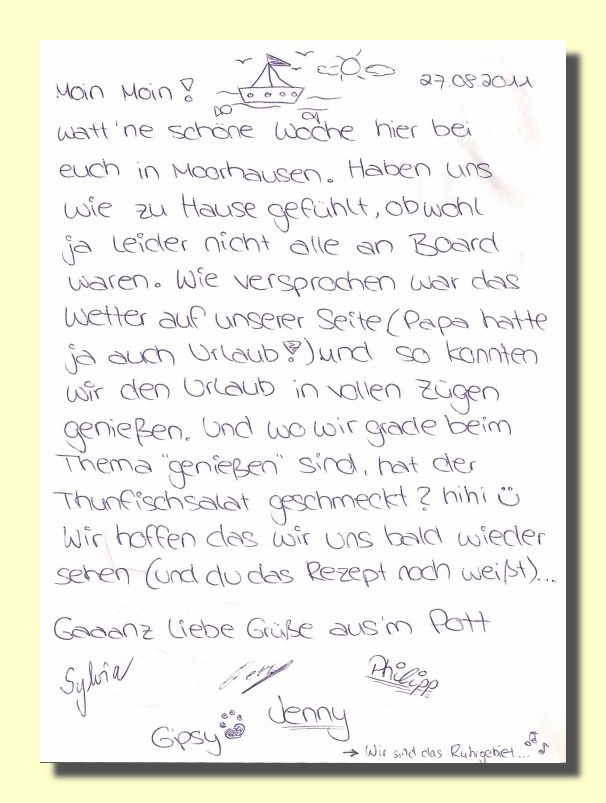 Moin Moin! 27.08.2011
watt'ne schöne Woche hier bei
euch in Moorhausen. Haben uns
wie zu Hause gefühlt, obwohl
ja leider nicht alle an Board
waren. Wie versprochen war das
Wetter auf unserer Seite (Papa hatte
ja auch Urlaub!) und so konnten
wir den Urlaub in vollen Zügen
genießen. Und wo wir grade beim
Thema "genießen" sind, hat der
Thunfischsalat geschmeckt? hihi ☺
Wir hoffen das wir uns bald wieder
sehen (und du das Rezept noch weißt)...
Gaaanz Liebe Grüße aus'm Pott
Sylvia Philipp
Jenny
Gipsy
→ Wir sind das Ruhrgebiet...